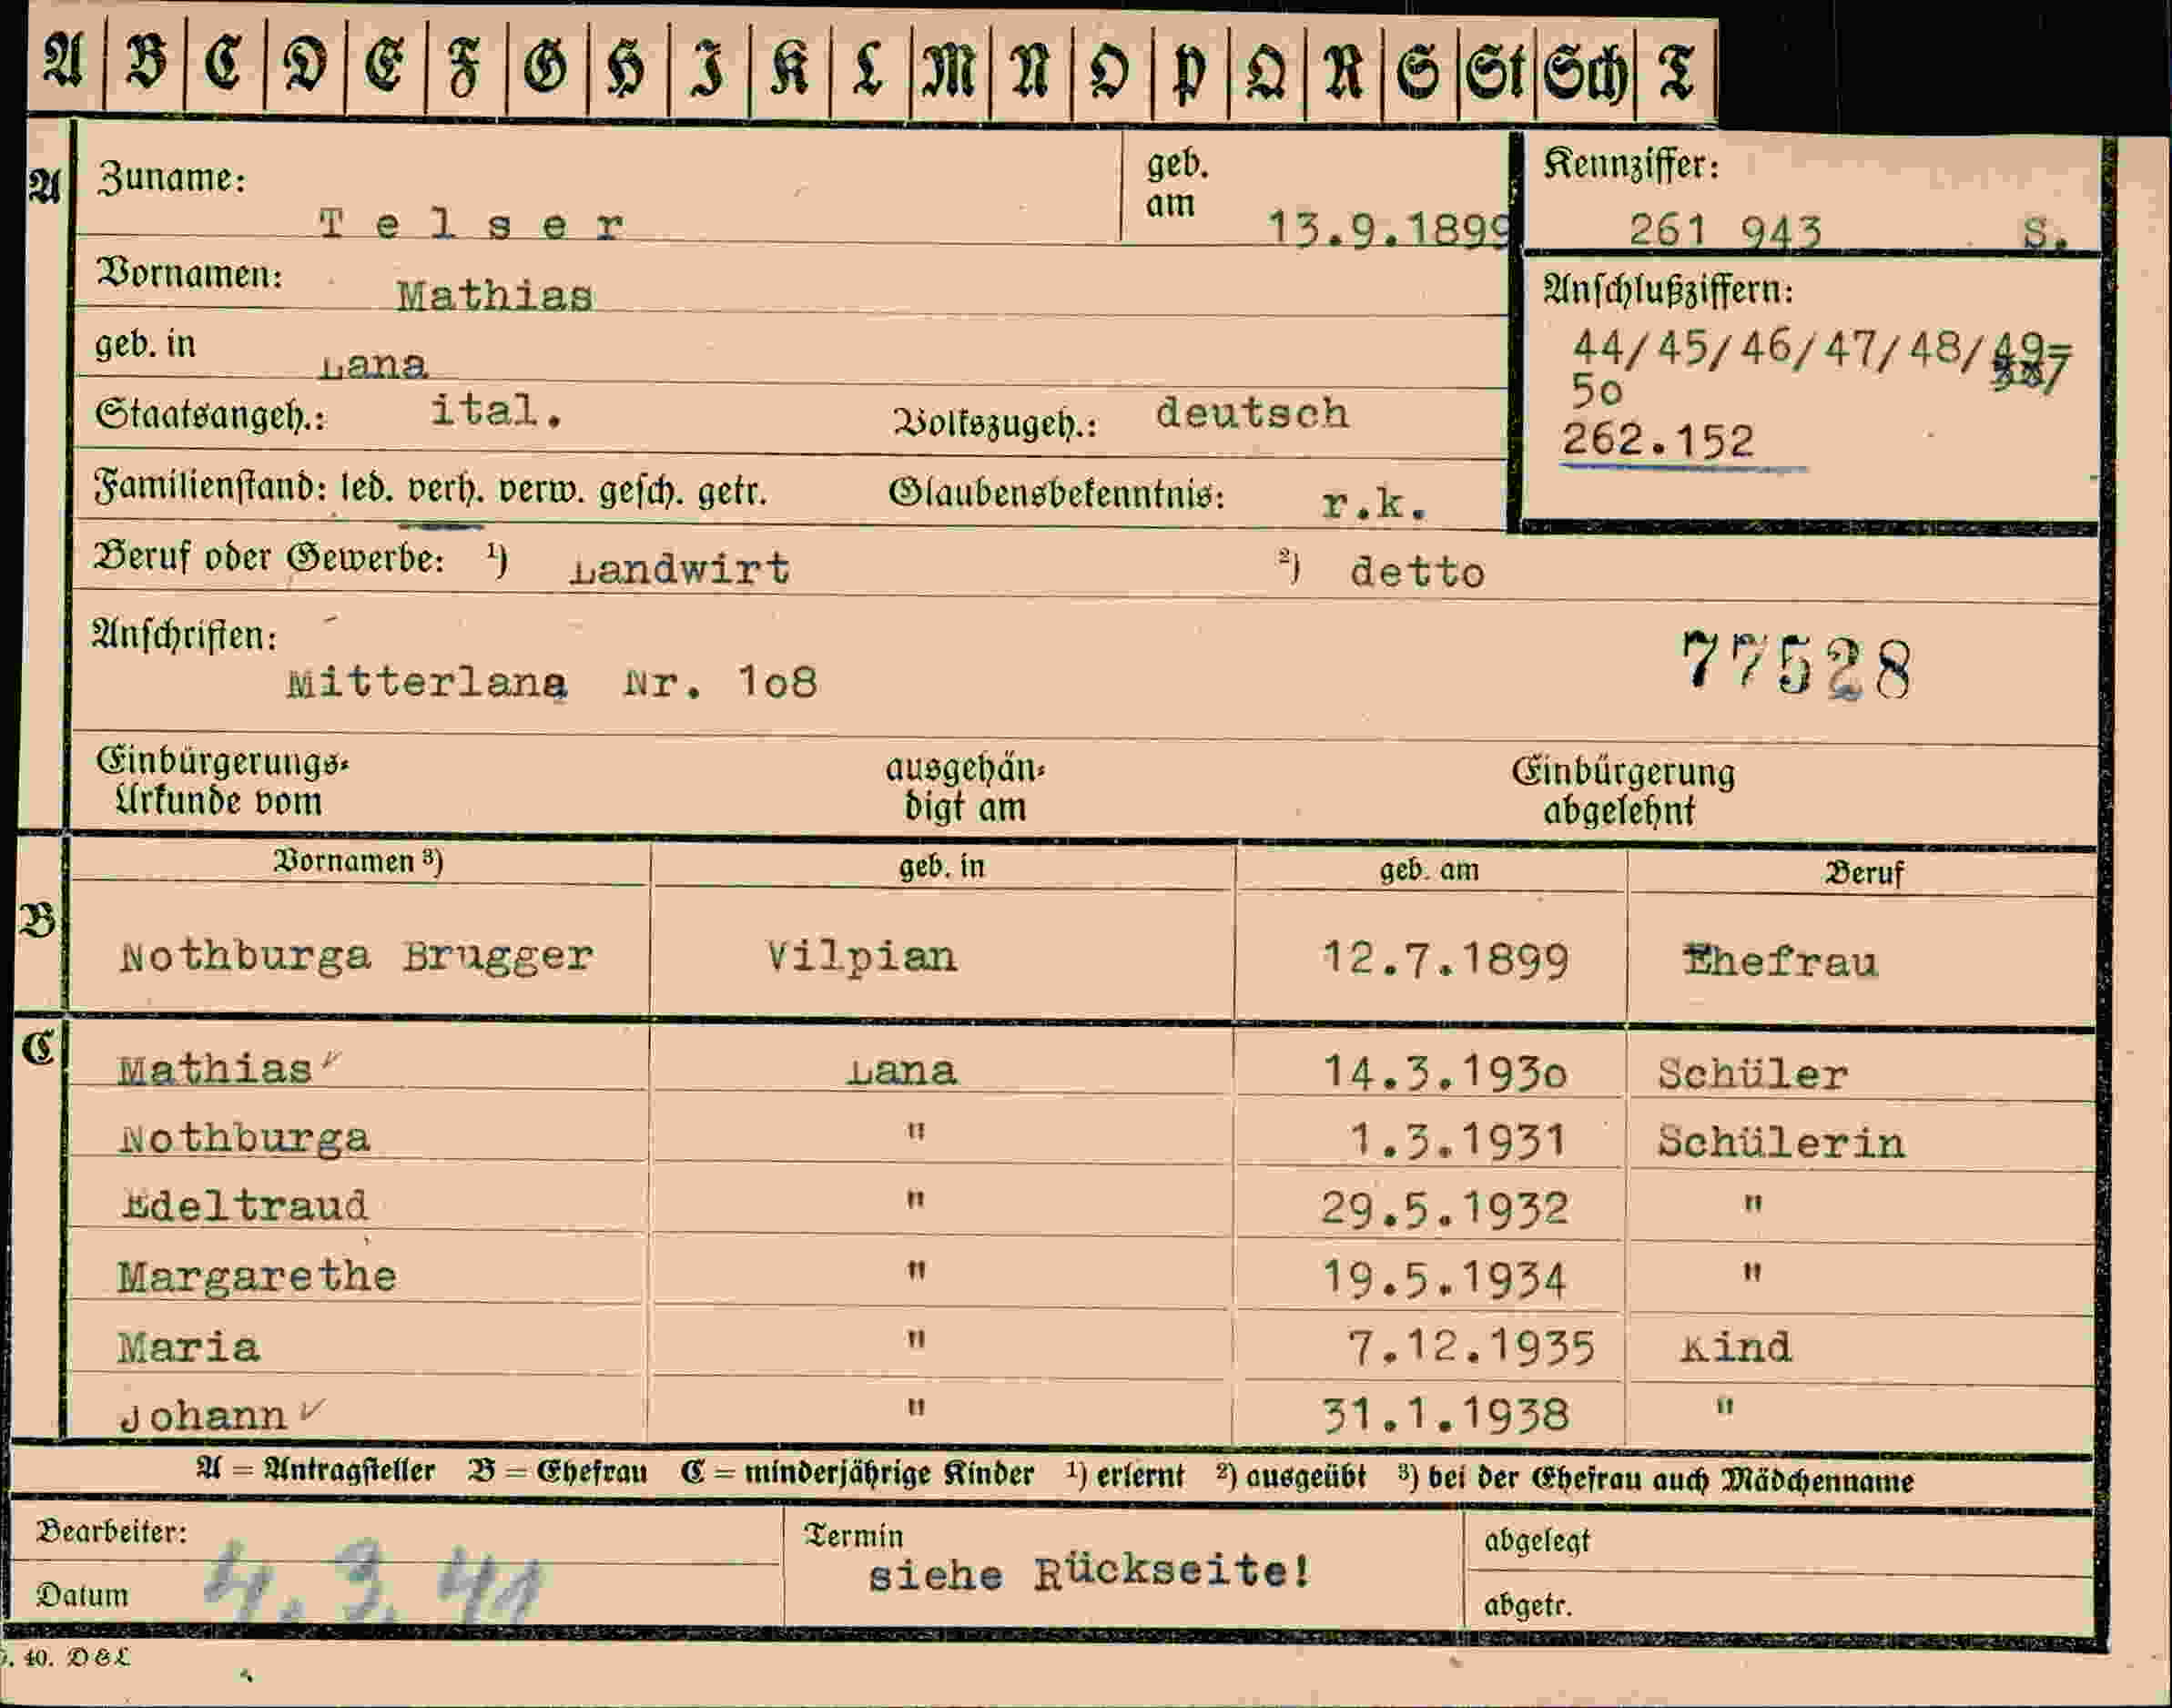 A B C D E F G H I K L M N O P Q R S St Sch T
A Zuname: Telser geb. am 13.9.1899 Kennziffer: 261 943 S.
Vornamen: Mathias
Anschlußziffern:
44/45/46/47/48/49=
50
262.152
geb. in Lana
Staatsangeh.: ital. Volkszugeh.: deutsch
Familienstand: led. verh. verw. gesch. getr. Glaubensbekenntnis: r.k.
Beruf oder Gewerbe: 1) Landwirt 2) detto
Anschriften:
Mitterlana Nr. 1o8 77528
Einbürgerungs-
Urkunde vom
ausgehän-
digt am
Einbürgerung
abgelehnt
Vornamen 3) geb. in geb. am Beruf
B Nothburga Brugger Vilpian 12.7.1899 Ehefrau
C Mathias ✓ Lana 14.3.193o Schüler
Nothburga " 1.3.1931 Schülerin
Edeltraud " 29.5.1932 "
Margarethe " 19.5.1934 "
Maria " 7.12.1935 Kind
Johann ✓ " 31.1.1938 "
A = Antragsteller B = Ehefrau C = minderjährige Kinder 1) erlernt 2) ausgeübt 3) bei der Ehefrau auch Mädchenname
Bearbeiter:
Datum 4.3.41
Termin
siehe Rückseite!
abgelegt
abgetr.
40. D&L